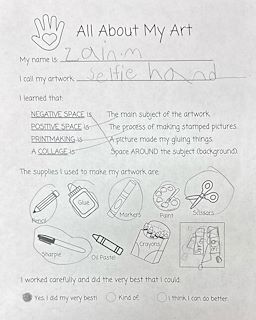 All About My Art
My name is zain.m
I call my artwork selfie hand
I learned that:
NEGATIVE SPACE is The main subject of the artwork
POSITIVE SPACE is The process of making stamped pictures.
PRINTMAKING is A picture made my gluing things.
A COLLAGE is Space AROUND the subject (background).
The supplies I used to make my artwork are:
Pencil Glue Markers Paint Scissors
Sharpie Oil Pastel Crayons
I worked carefully and did the very best that I could:
Yes, I did my very best! Kind of. I think I can do better.